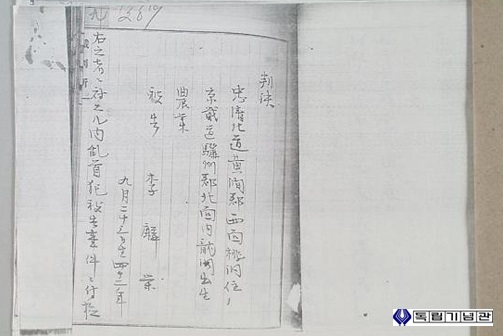 判決
忠淸北道黃澗郡西面桃洞住
京畿道驪州郡北面內龍洞出生
農業
被告 李麟榮
九月二十三日生四十二年
右之者ニ対スル內乱首犯被告事件ニ付検
독립기념관